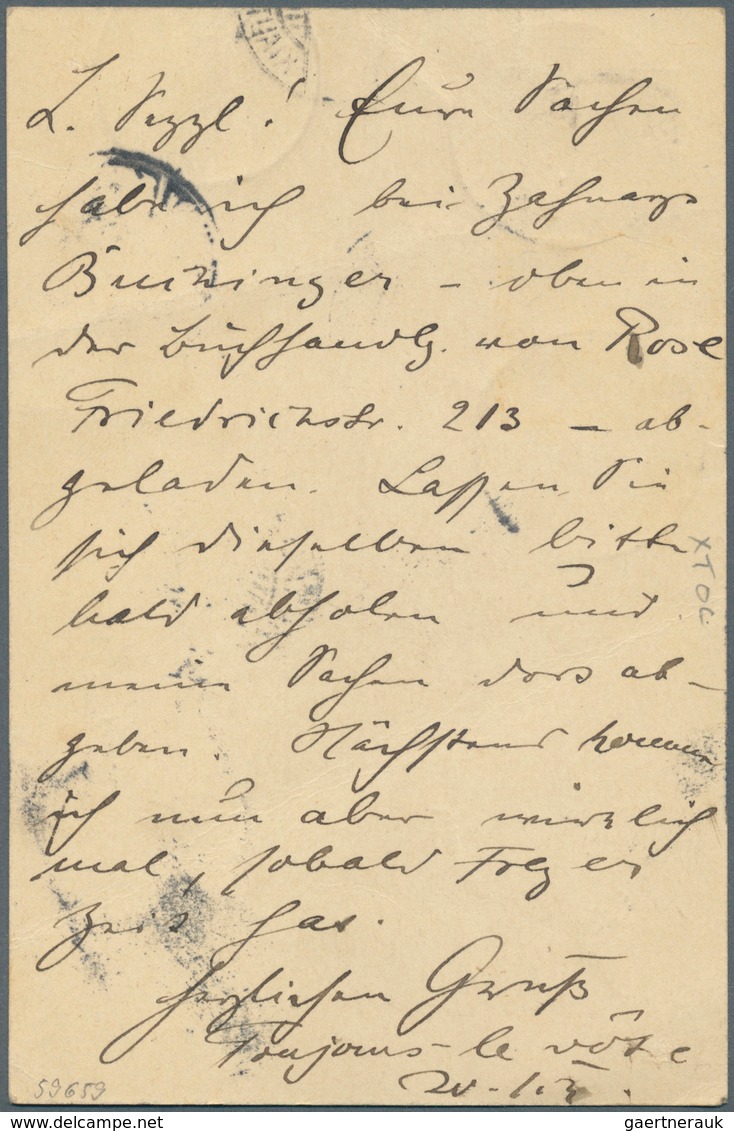 L. Sezzl! Eure Sachen
habe ich bei Zahnarzt
Buchinger – oben in
der Buchhandlg. von Rose
Friedrichstr. 213 – ab-
geladen. Lassen Sie
sich dieselben bitte
bald abholen und
meine Sachen dort ab-
geben. Nächstens komme
ich nun aber wirklich
mal, sobald er
Zeit hat.
herzlichen Gruß
Toujours le vôtre
XTOC
59659
gaertnerauk